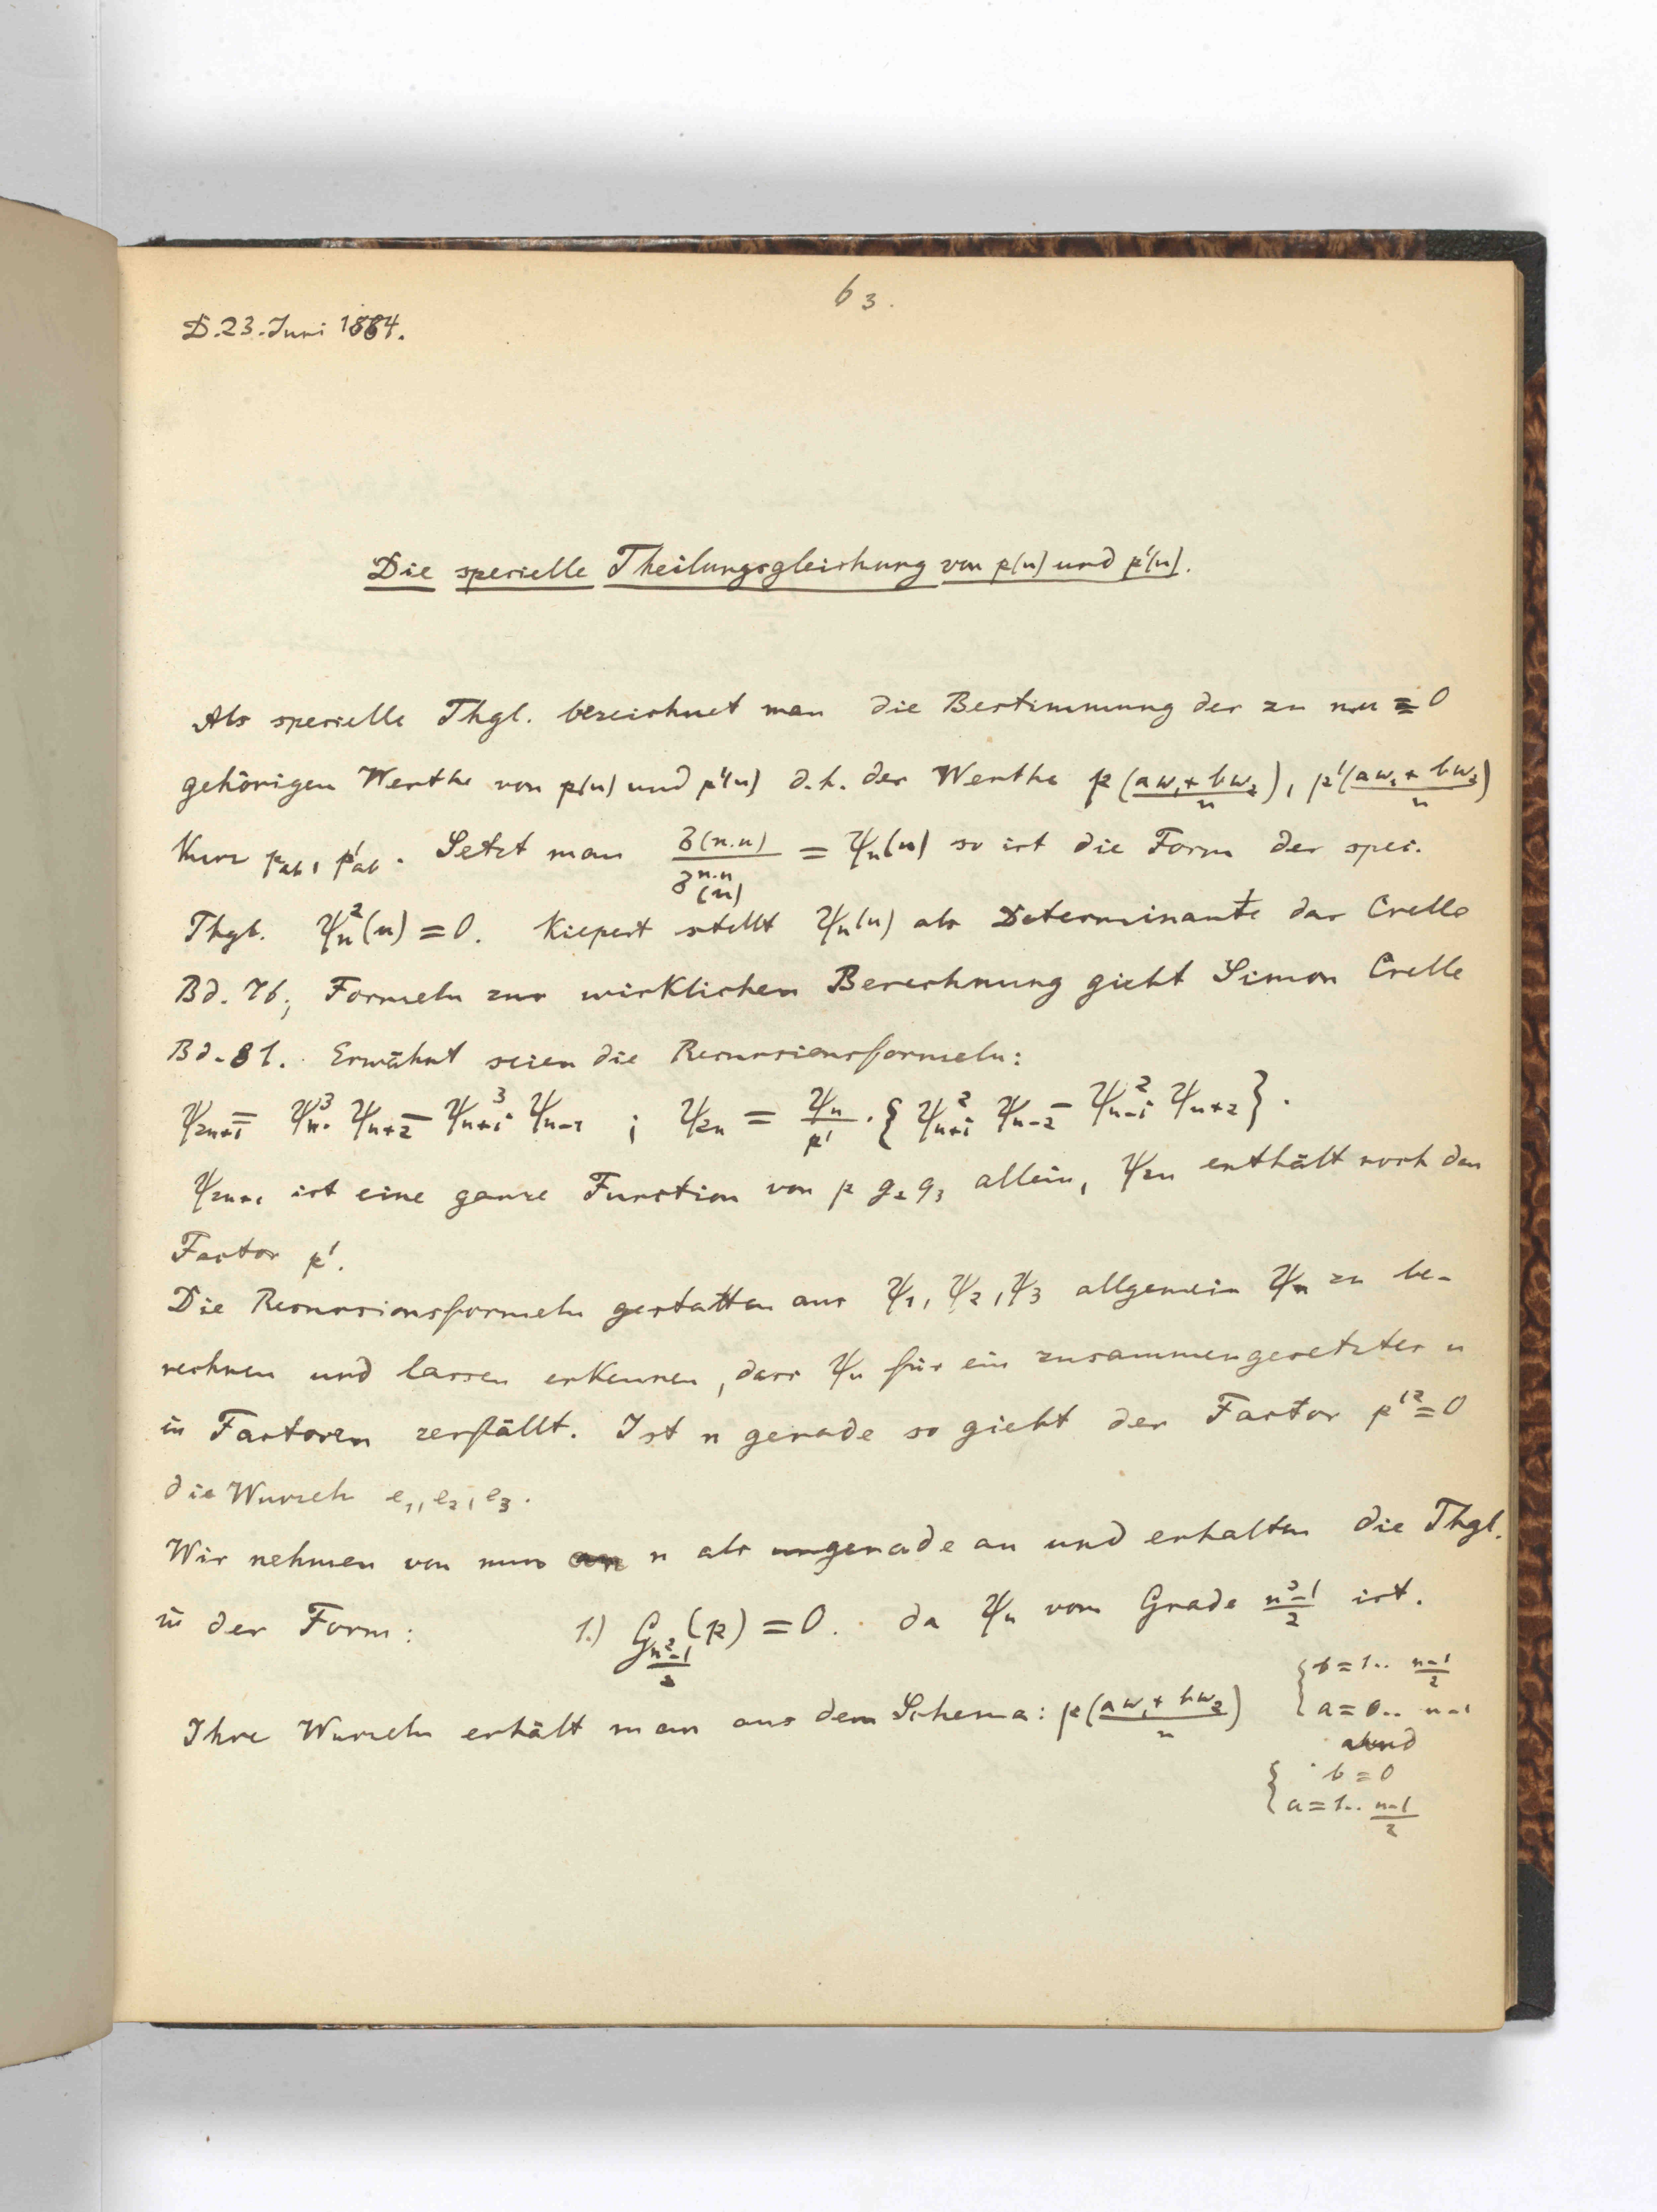 63.
D. 23. Juni 1884.
Die specielle Theilungsgleichung von p(u) und p'(u).
Als specielle Thgl. bezeichnet man die Bestimmung der zu n.u ≡ 0
gehörigen Werthe von p(u) und p'(u) d.h. der Werthe p((aω₁+bω₂)/n), p'((aω₁+bω₂)/n)
kurz p_ab, p'_ab. Setzt man σ(n.u)/σ^{n.n}(u) = ψ_n(u) so ist die Form der spez.
Thgl. ψ_n²(u) = 0. Kiepert stellt ψ_n(u) als Determinante dar Crelle
Bd. 76; Formeln zur wirklichen Berechnung giebt Simon Crelle
Bd. 81. Erwähnt seien die Recursionsformeln:
ψ_{2n+1} = ψ_n³. ψ_{n+2} − ψ_{n+1}³ ψ_{n-1} ; ψ_{2n} = ψ_n/p' . { ψ_{n+1}² ψ_{n-2} − ψ_{n-1}² ψ_{n+2} } .
ψ_{2n+1} ist eine ganze Function von p g₂ g₃ allein, ψ_{2n} enthält noch den
Factor p'.
Die Recursionsformeln gestatten aus ψ₁, ψ₂, ψ₃ allgemein ψ_n zu be-
rechnen und lassen erkennen, dass ψ_n für ein zusammengesetztes n
in Factoren zerfällt. Ist n gerade so giebt der Factor p'² = 0
die Wurzeln e₁, e₂, e₃.
Wir nehmen von nun an n als ungerade an und erhalten die Thgl.
in der Form: 1.) G_{(n²-1)/2}(p) = 0. da ψ_n vom Grade (n²-1)/2 ist.
Ihre Wurzeln erhält man aus dem Schema: p((aω₁+bω₂)/n) { b = 1.. (n-1)/2
a = 0.. n-1
und
{ b = 0
a = 1.. (n-1)/2